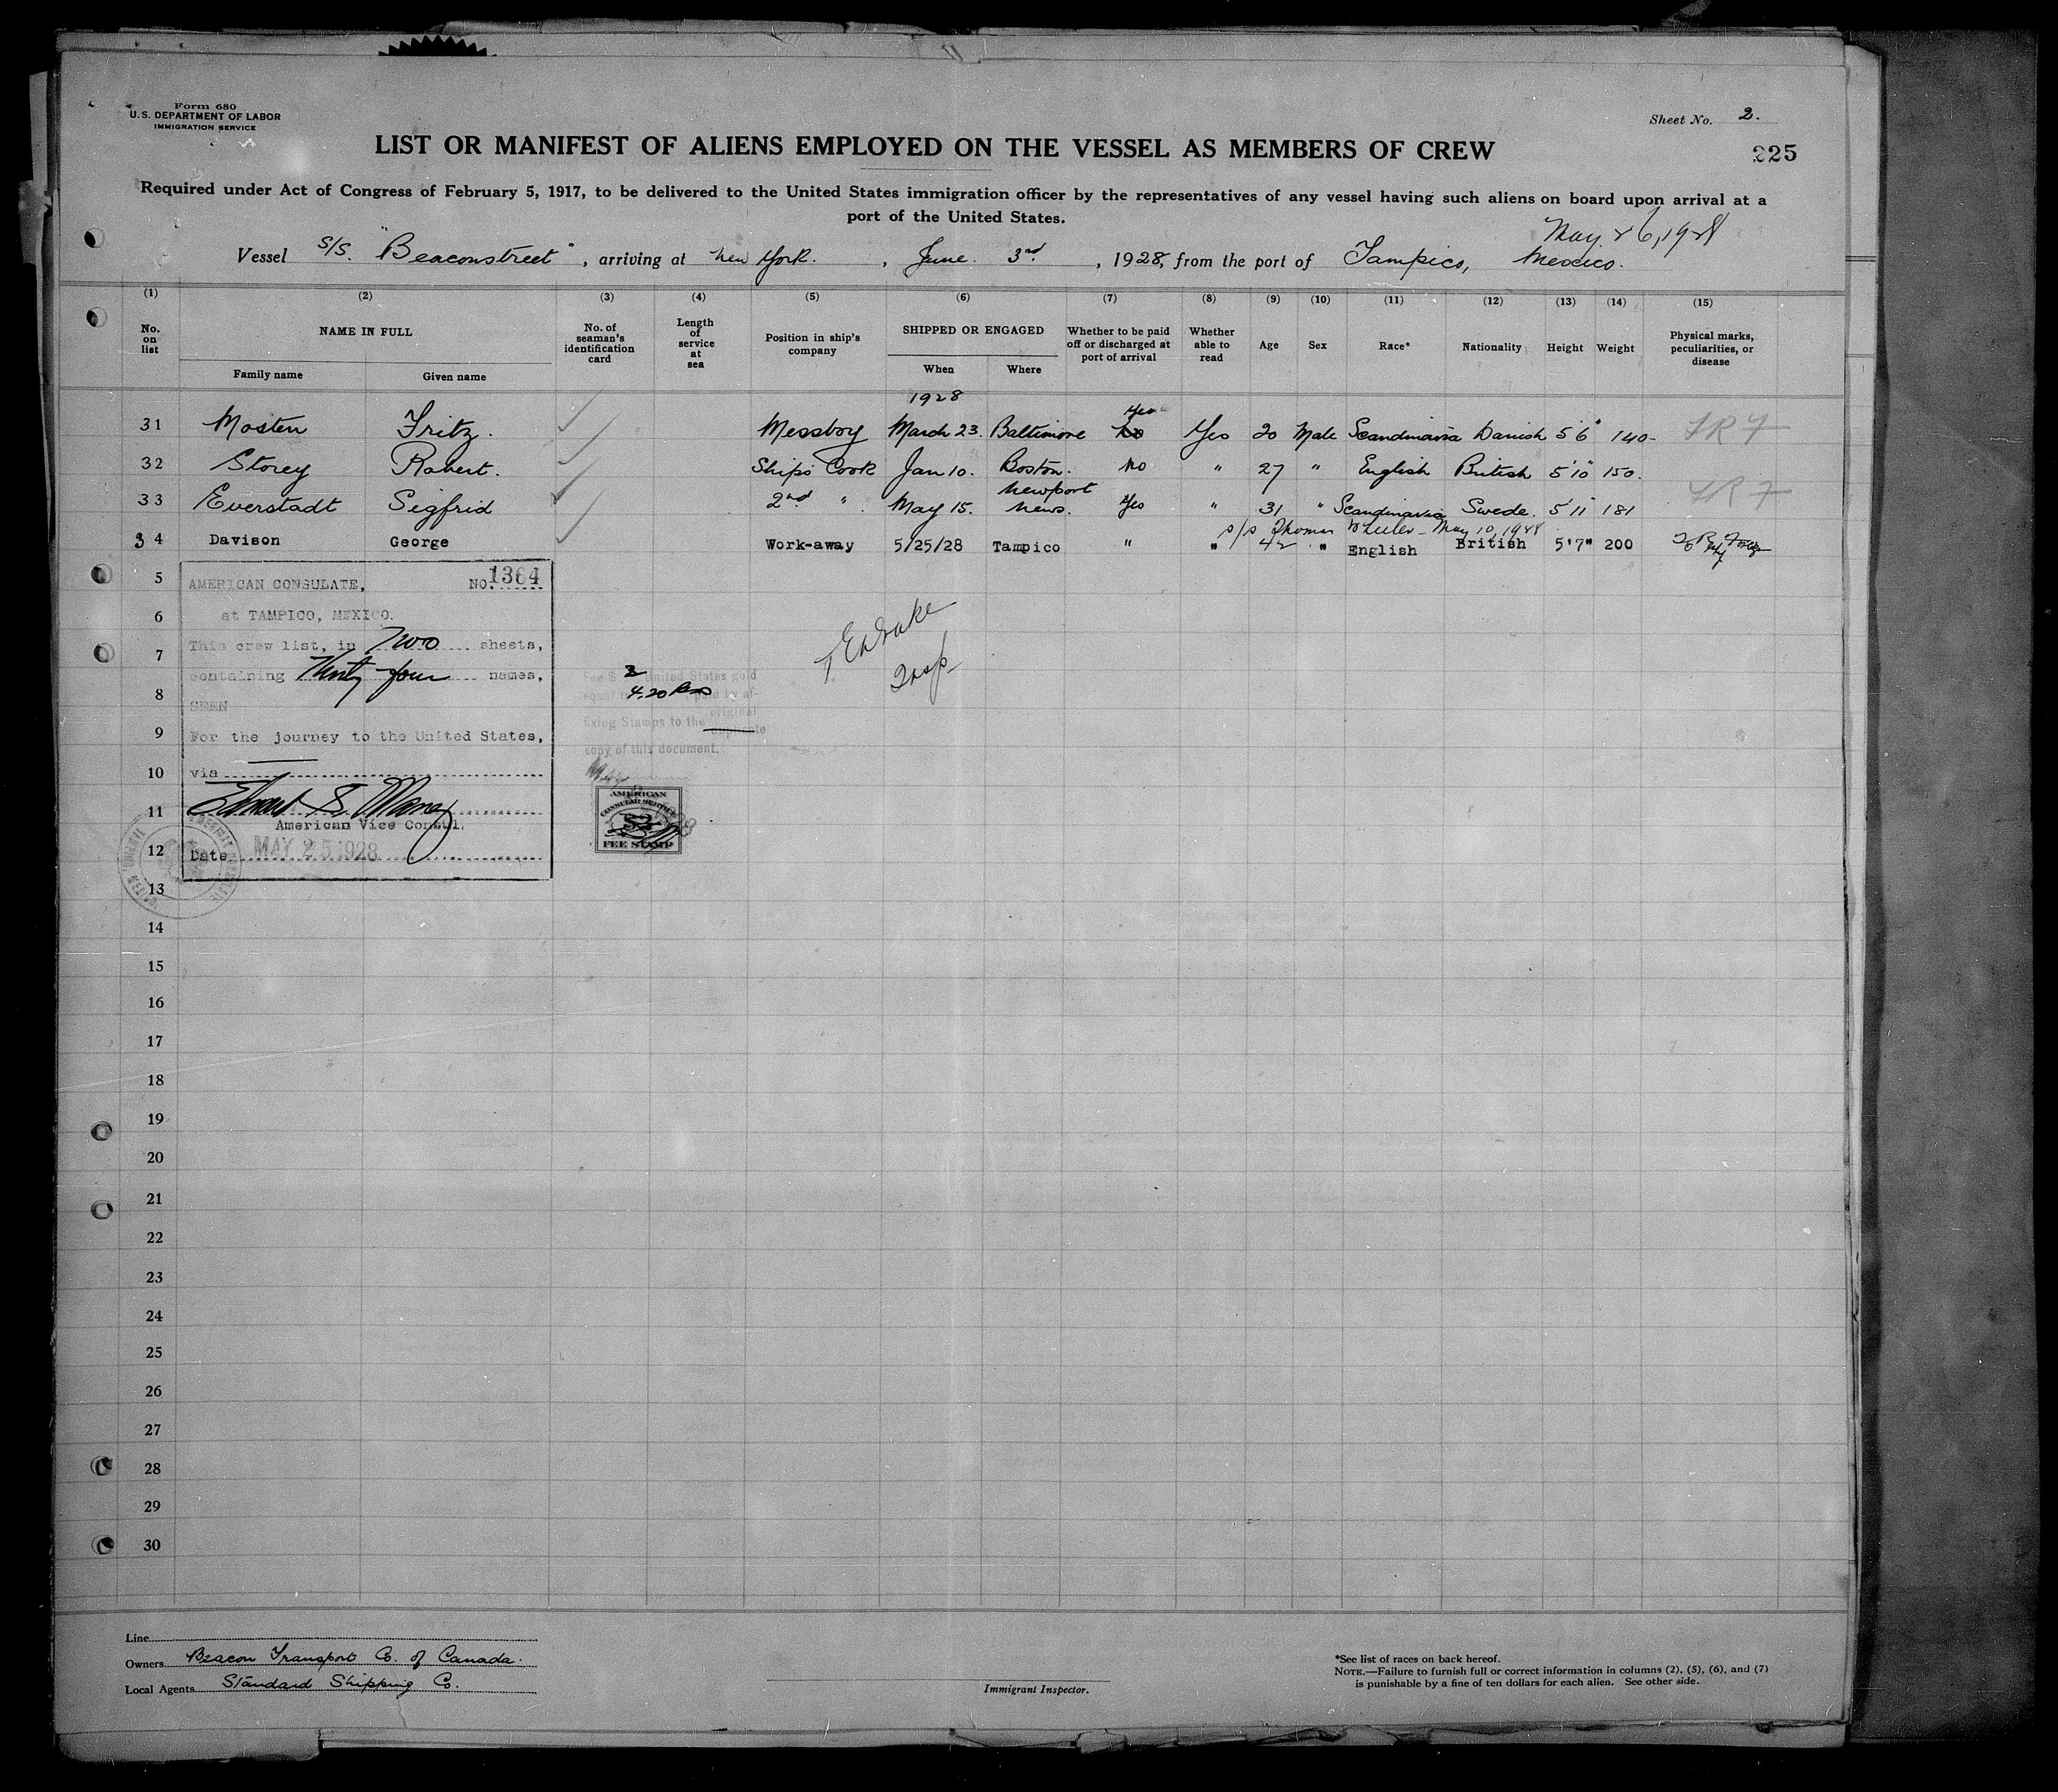 Form 680
U. S. DEPARTMENT OF LABOR
IMMIGRATION SERVICE
Sheet No. 2.
LIST OR MANIFEST OF ALIENS EMPLOYED ON THE VESSEL AS MEMBERS OF CREW
225
Required under Act of Congress of February 5, 1917, to be delivered to the United States immigration officer by the representatives of any vessel having such aliens on board upon arrival at a
port of the United States.
May 26, 1928
Vessel S/S. "Beaconstreet", arriving at New York., June 3rd, 1928, from the port of Tampico, Mexico.
(1) (2) (3) (4) (5) (6) (7) (8) (9) (10) (11) (12) (13) (14) (15)
No. on list
NAME IN FULL
Family name
Given name
No. of seaman's identification card
Length of service at sea
Position in ship's company
SHIPPED OR ENGAGED
When
Where
Whether to be paid off or discharged at port of arrival
Whether able to read
Age
Sex
Race*
Nationality
Height
Weight
Physical marks, peculiarities, or disease
1928
Yes
31 Mosten Fritz. Messboy March 23. Baltimore No Yes 20 Male Scandinavia Danish 5'6" 140-
32 Storey Robert. Ships Cook Jan 10. Boston. No " 27 " English British 5'10" 150.
33 Everstadt Sigfrid 2nd " May 15. Newport News. Yes " 31 " Scandinavia Swede. 5'11" 181
s/s Thomas Wheeler - May 10, 1928
34 Davison George Work-away 5/25/28 Tampico " " 42 " English British 5'7" 200
5
AMERICAN CONSULATE, NO. 1364
6
at TAMPICO, MEXICO.
7
This crew list, in Two sheets,
containing Thirty four names,
8
SEEN
9
For the journey to the United States,
10
via
11
American Vice Consul.
12
Date MAY 25 1928
Fee $ 2 United States gold
equal to 4.20 paid by af-
fixing Stamps to the original
duplicate
copy of this document.
AMERICAN
CONSULAR SERVICE
$2
FEE STAMP
Insp
13
14
15
16
17
18
19
20
21
22
23
24
25
26
27
28
29
30
Line
Owners Beacon Transport Co. of Canada.
Local Agents Standard Shipping Co.
Immigrant Inspector.
*See list of races on back hereof.
NOTE.—Failure to furnish full or correct information in columns (2), (5), (6), and (7)
is punishable by a fine of ten dollars for each alien. See other side.